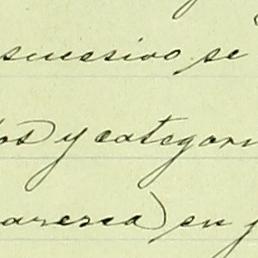 sucesivo se
os y categor
aresca en